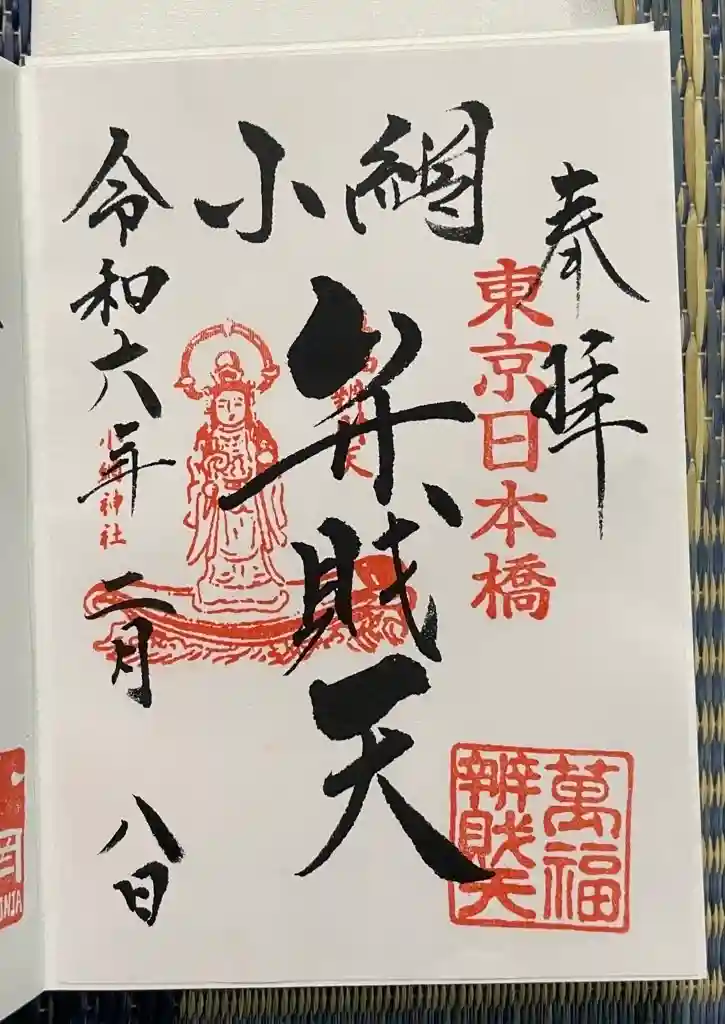 奉拝
東京日本橋
小網
弁財天
令和六年二月八日
小網神社
萬福
辨財天